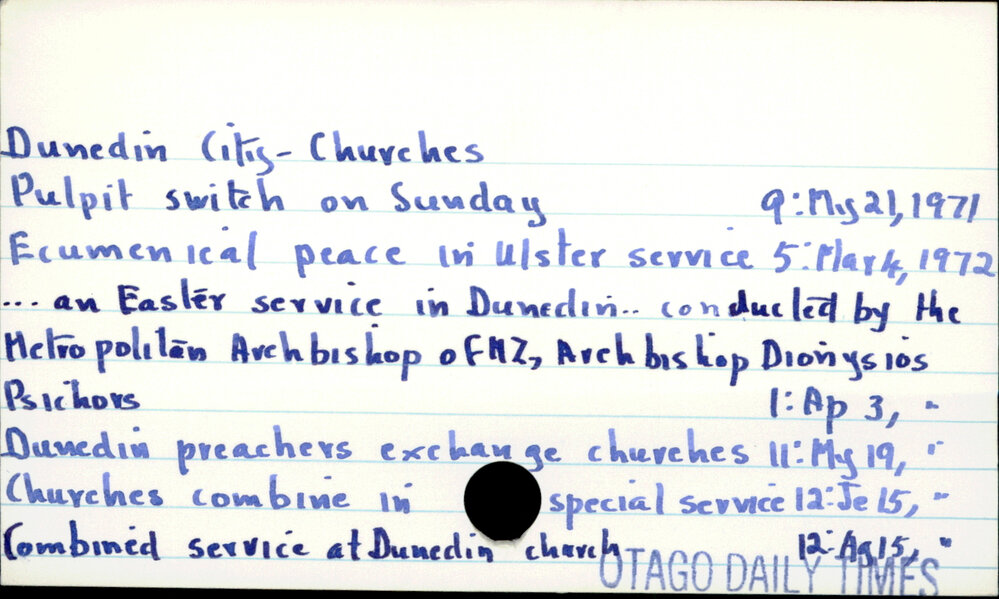 Dunedin City - Churches
Pulpit switch on Sunday 9: My 21, 1971
Ecumenical peace in Ulster service 5: Mar 4, 1972
... an Easter service in Dunedin.. conducted by the
Metropolitan Archbishop of NZ, Archbishop Dionysios
Psichors 1: Ap 3, "
Dunedin preachers exchange churches 11: My 19, "
Churches combine in special service 12: Je 15, "
Combined service at Dunedin church 12: Ag 15, "
OTAGO DAILY TIMES